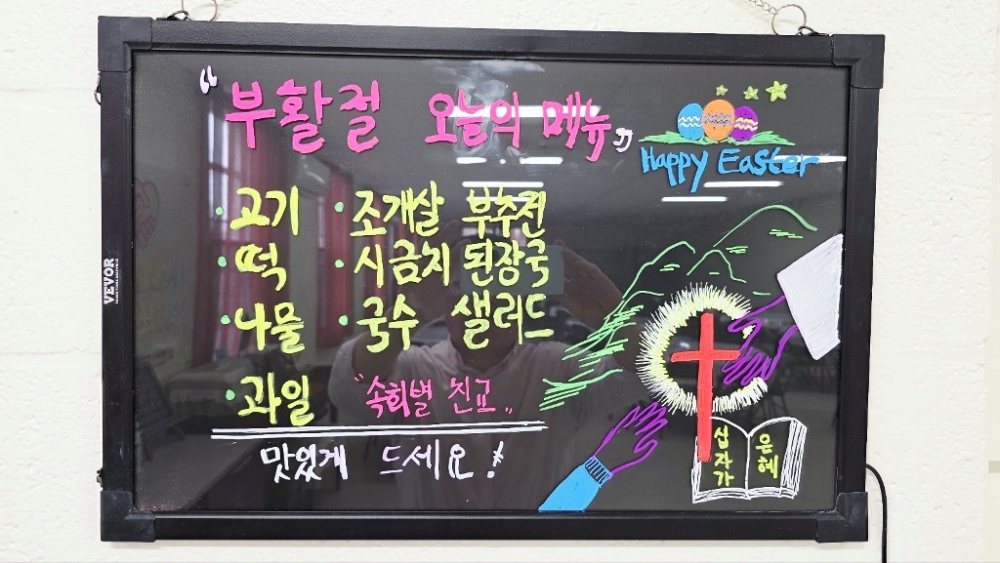 “부활절 오늘의 메뉴”
Happy Easter
· 고기 · 조개살 부추전
· 떡 · 시금치 된장국
· 나물 · 국수 샐러드
· 과일 “속회별 친교”
맛있게 드세요!
십자가
은혜
VEVOR